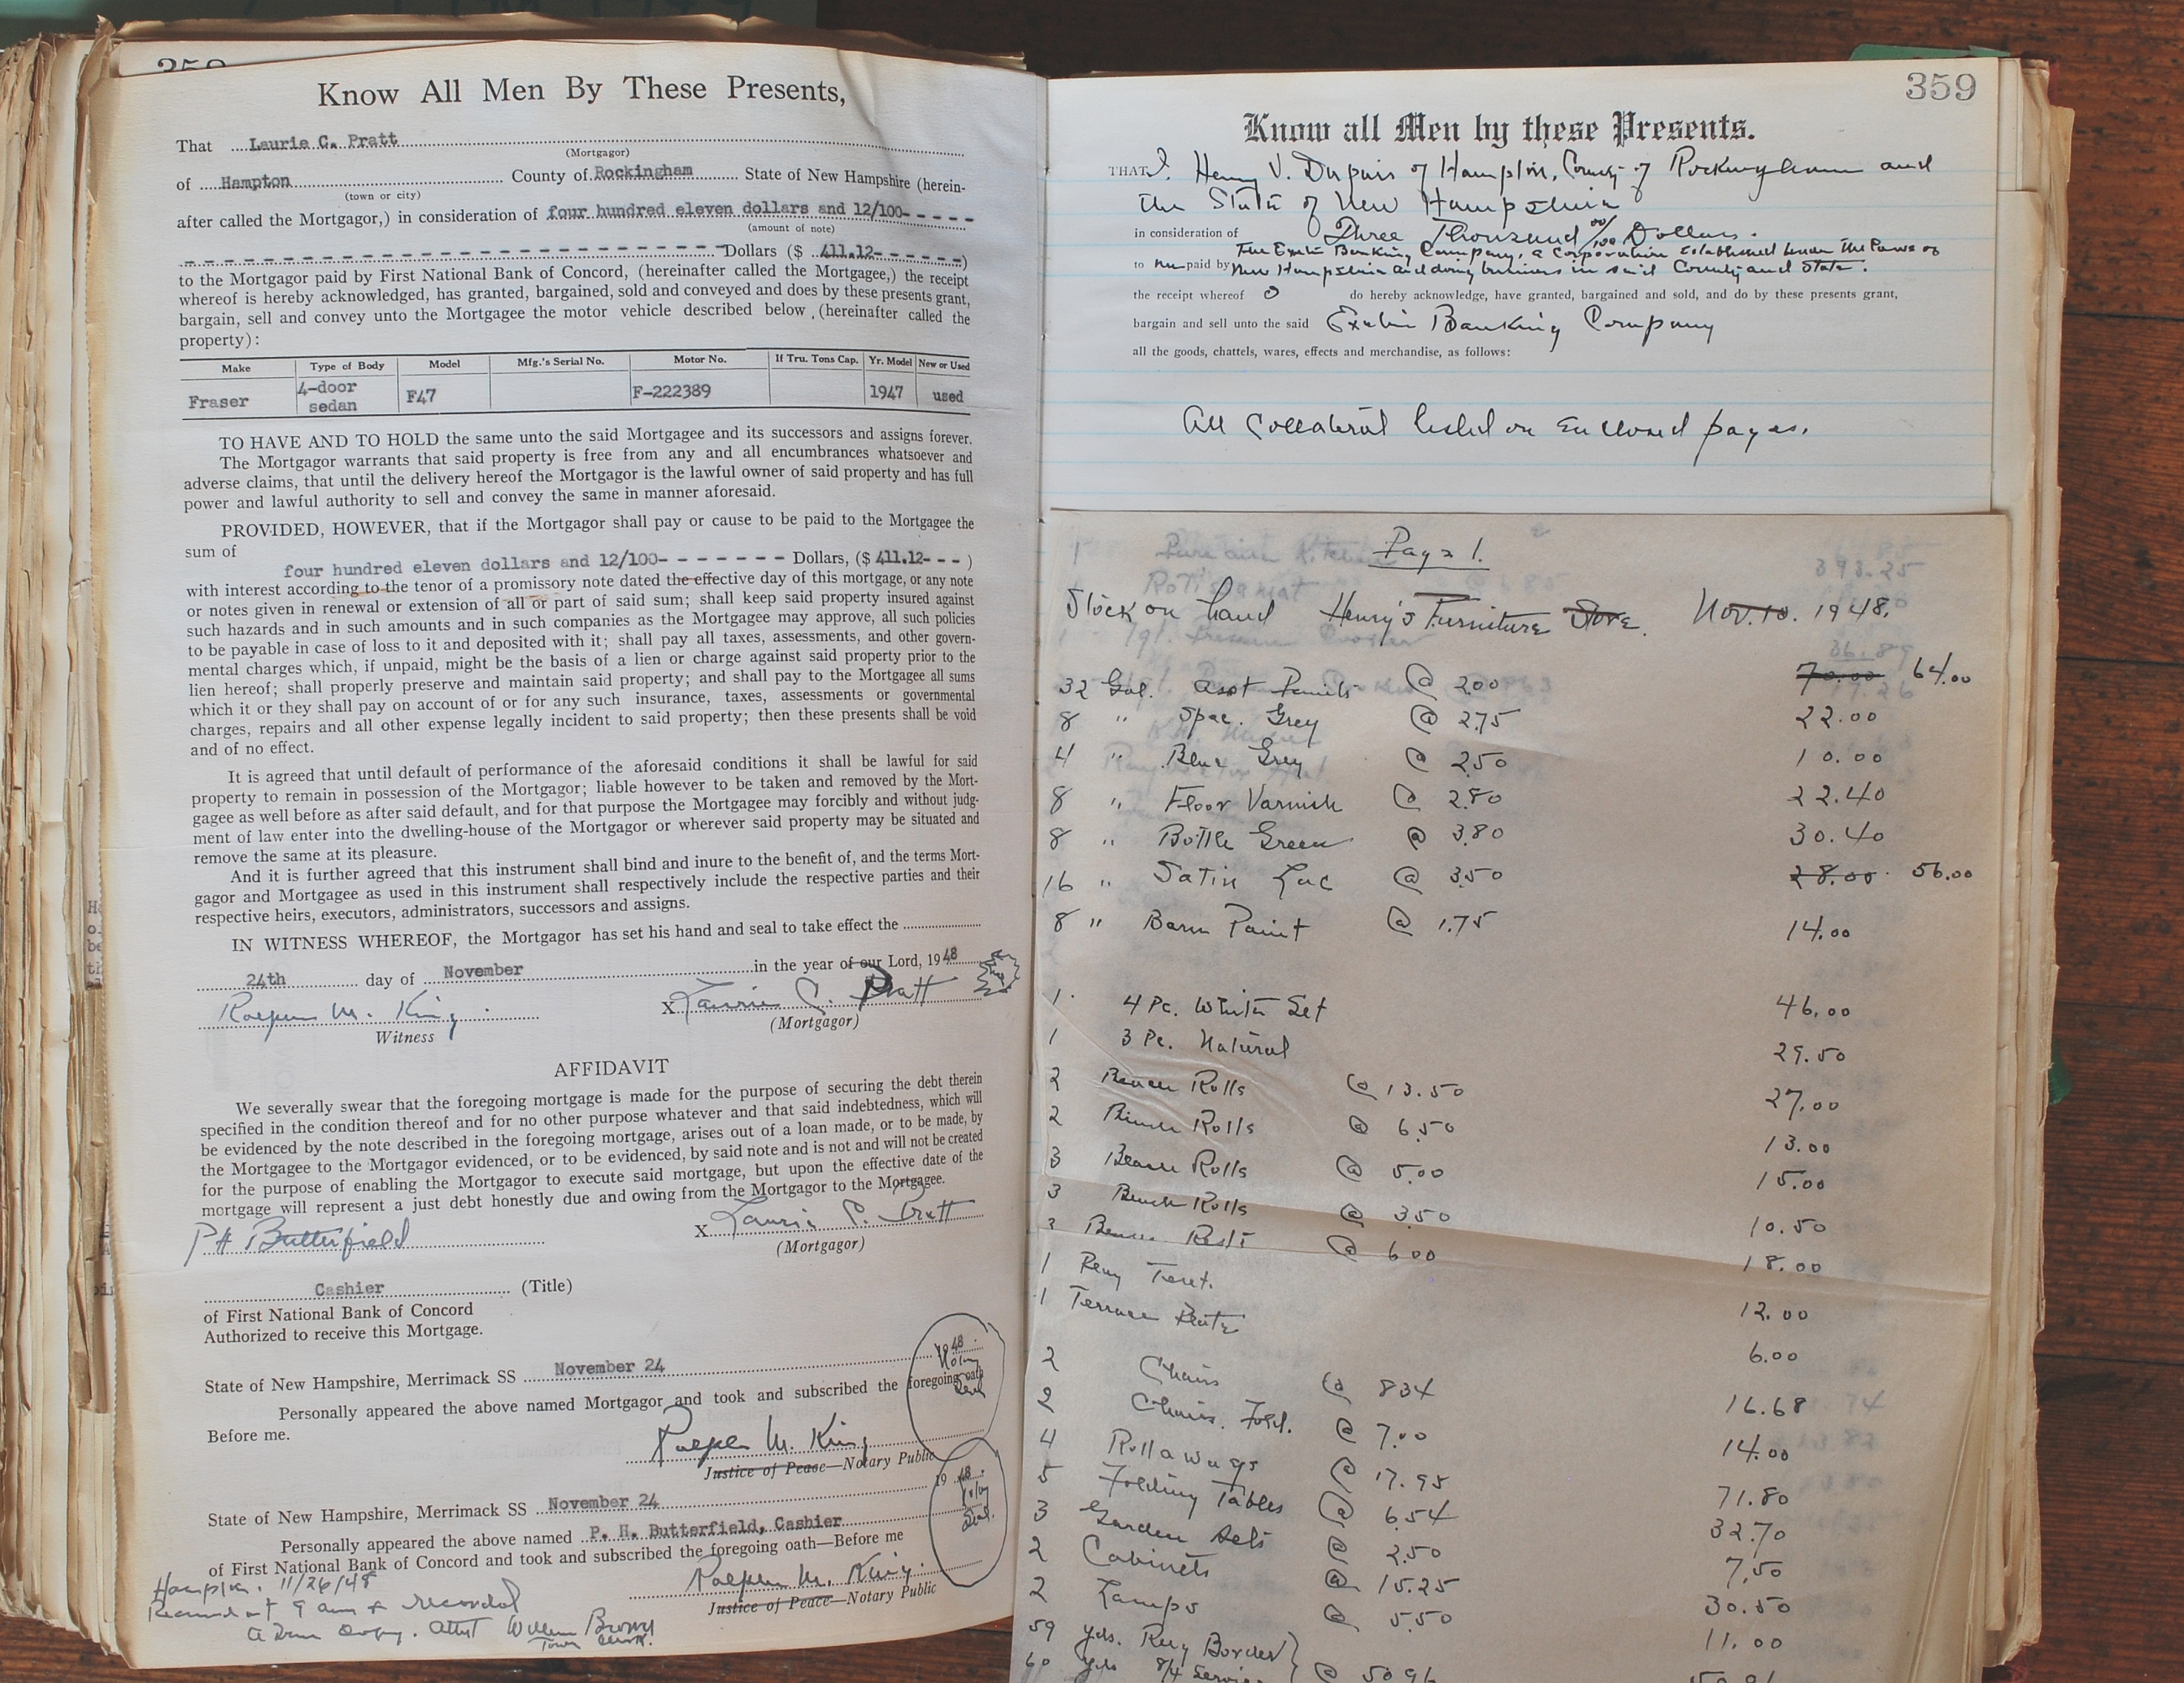 Know All Men By These Presents,
That Laurie C. Pratt
(Mortgagor)
of Hampton County of Rockingham State of New Hampshire (herein-
(town or city)
after called the Mortgagor,) in consideration of four hundred eleven dollars and 12/100- - - - -
(amount of note)
- - - - - - - - - - - - - - - - - - - - - - Dollars ($ 411.12- - - - - -)
to the Mortgagor paid by First National Bank of Concord, (hereinafter called the Mortgagee,) the receipt
whereof is hereby acknowledged, has granted, bargained, sold and conveyed and does by these presents grant,
bargain, sell and convey unto the Mortgagee the motor vehicle described below, (hereinafter called the
property):
Make Type of Body Model Mfg.'s Serial No. Motor No. If Tru. Tons Cap. Yr. Model New or Used
Fraser 4-door sedan F47 F-222389 1947 used
TO HAVE AND TO HOLD the same unto the said Mortgagee and its successors and assigns forever.
The Mortgagor warrants that said property is free from any and all encumbrances whatsoever and
adverse claims, that until the delivery hereof the Mortgagor is the lawful owner of said property and has full
power and lawful authority to sell and convey the same in manner aforesaid.
PROVIDED, HOWEVER, that if the Mortgagor shall pay or cause to be paid to the Mortgagee the
sum of
four hundred eleven dollars and 12/100- - - - - - - Dollars, ($ 411.12- - - )
with interest according to the tenor of a promissory note dated the effective day of this mortgage, or any note
or notes given in renewal or extension of all or part of said sum; shall keep said property insured against
such hazards and in such amounts and in such companies as the Mortgagee may approve, all such policies
to be payable in case of loss to it and deposited with it; shall pay all taxes, assessments, and other govern-
mental charges which, if unpaid, might be the basis of a lien or charge against said property prior to the
lien hereof; shall properly preserve and maintain said property; and shall pay to the Mortgagee all sums
which it or they shall pay on account of or for any such insurance, taxes, assessments or governmental
charges, repairs and all other expense legally incident to said property; then these presents shall be void
and of no effect.
It is agreed that until default of performance of the aforesaid conditions it shall be lawful for said
property to remain in possession of the Mortgagor; liable however to be taken and removed by the Mort-
gagee as well before as after said default, and for that purpose the Mortgagee may forcibly and without judg-
ment of law enter into the dwelling-house of the Mortgagor or wherever said property may be situated and
remove the same at its pleasure.
And it is further agreed that this instrument shall bind and inure to the benefit of, and the terms Mort-
gagor and Mortgagee as used in this instrument shall respectively include the respective parties and their
respective heirs, executors, administrators, successors and assigns.
IN WITNESS WHEREOF, the Mortgagor has set his hand and seal to take effect the
24th day of November in the year of our Lord, 1948
M. King X Laurie C. Pratt
Witness (Mortgagor)
AFFIDAVIT
We severally swear that the foregoing mortgage is made for the purpose of securing the debt therein
specified in the condition thereof and for no other purpose whatever and that said indebtedness, which will
be evidenced by the note described in the foregoing mortgage, arises out of a loan made, or to be made, by
the Mortgagee to the Mortgagor evidenced, or to be evidenced, by said note and is not and will not be created
for the purpose of enabling the Mortgagor to execute said mortgage, but upon the effective date of the
mortgage will represent a just debt honestly due and owing from the Mortgagor to the Mortgagee.
P H Butterfield X Laurie C. Pratt
(Mortgagor)
Cashier (Title)
of First National Bank of Concord
Authorized to receive this Mortgage.
State of New Hampshire, Merrimack SS November 24 1948
Personally appeared the above named Mortgagor and took and subscribed the foregoing oath
Before me.
Notary Seal
M. King
Justice of Peace—Notary Public
State of New Hampshire, Merrimack SS November 24 1948
Personally appeared the above named P. H. Butterfield, Cashier
of First National Bank of Concord and took and subscribed the foregoing oath—Before me
Seal.
M. King
Justice of Peace—Notary Public
Hampton. 11/26/48
Received at 9 am & recorded
A True Copy. Attest William Brown
Town Clerk.
359
Know all Men by these Presents.
THAT I. Henry V. Dupuis of Hampton, County of Rockingham and
the State of New Hampshire
in consideration of Three Thousand 00/100 Dollars.
to me paid by The Exeter Banking Company, a Corporation established under the Laws of
New Hampshire and doing business in said County and State.
the receipt whereof do hereby acknowledge, have granted, bargained and sold, and do by these presents grant,
bargain and sell unto the said Exeter Banking Company
all the goods, chattels, wares, effects and merchandise, as follows:
All Collateral listed on Enclosed pages.
Page 1.
Stock on hand Henry's Furniture Store. Nov. 10. 1948.
32 Gal. Asst Paints @ 2.00 70.00 64.00
8 " Spac. Grey @ 2.75 22.00
4 " Blue Grey @ 2.50 10.00
8 " Floor Varnish @ 2.80 22.40
8 " Bottle Green @ 3.80 30.40
16 " Satin Lac @ 3.50 28.00 56.00
8 " Barn Paint @ 1.75 14.00
1 4 Pc. White Set 46.00
1 3 Pc. Natural 29.50
2 Rolls @ 13.50 27.00
2 Rolls @ 6.50 13.00
3 Rolls @ 5.00 15.00
3 Rolls @ 3.50 10.50
3 @ 6.00 18.00
1 12.00
1 Terrace 6.00
2 Chairs @ 834 16.68
2 Chairs. Fold. @ 7.00 14.00
4 Rollaways @ 17.95 71.80
5 Folding Tables @ 6.54 32.70
3 Garden Sets @ 2.50 7.50
2 Cabinets @ 15.25 30.50
2 Lamps @ 5.50 11.00
59 yds. Rug Border
60 yds 8/4 @ 50 96